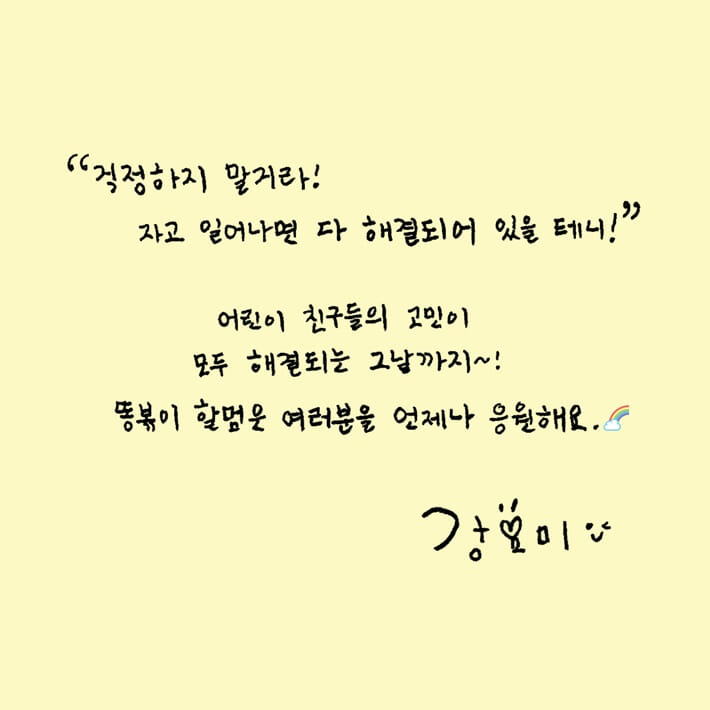 “걱정하지 말거라!
자고 일어나면 다 해결되어 있을 테니!”
어린이 친구들의 고민이
모두 해결되는 그날까지~!
똥볶이 할멈은 여러분을 언제나 응원해요.🌈
강효미